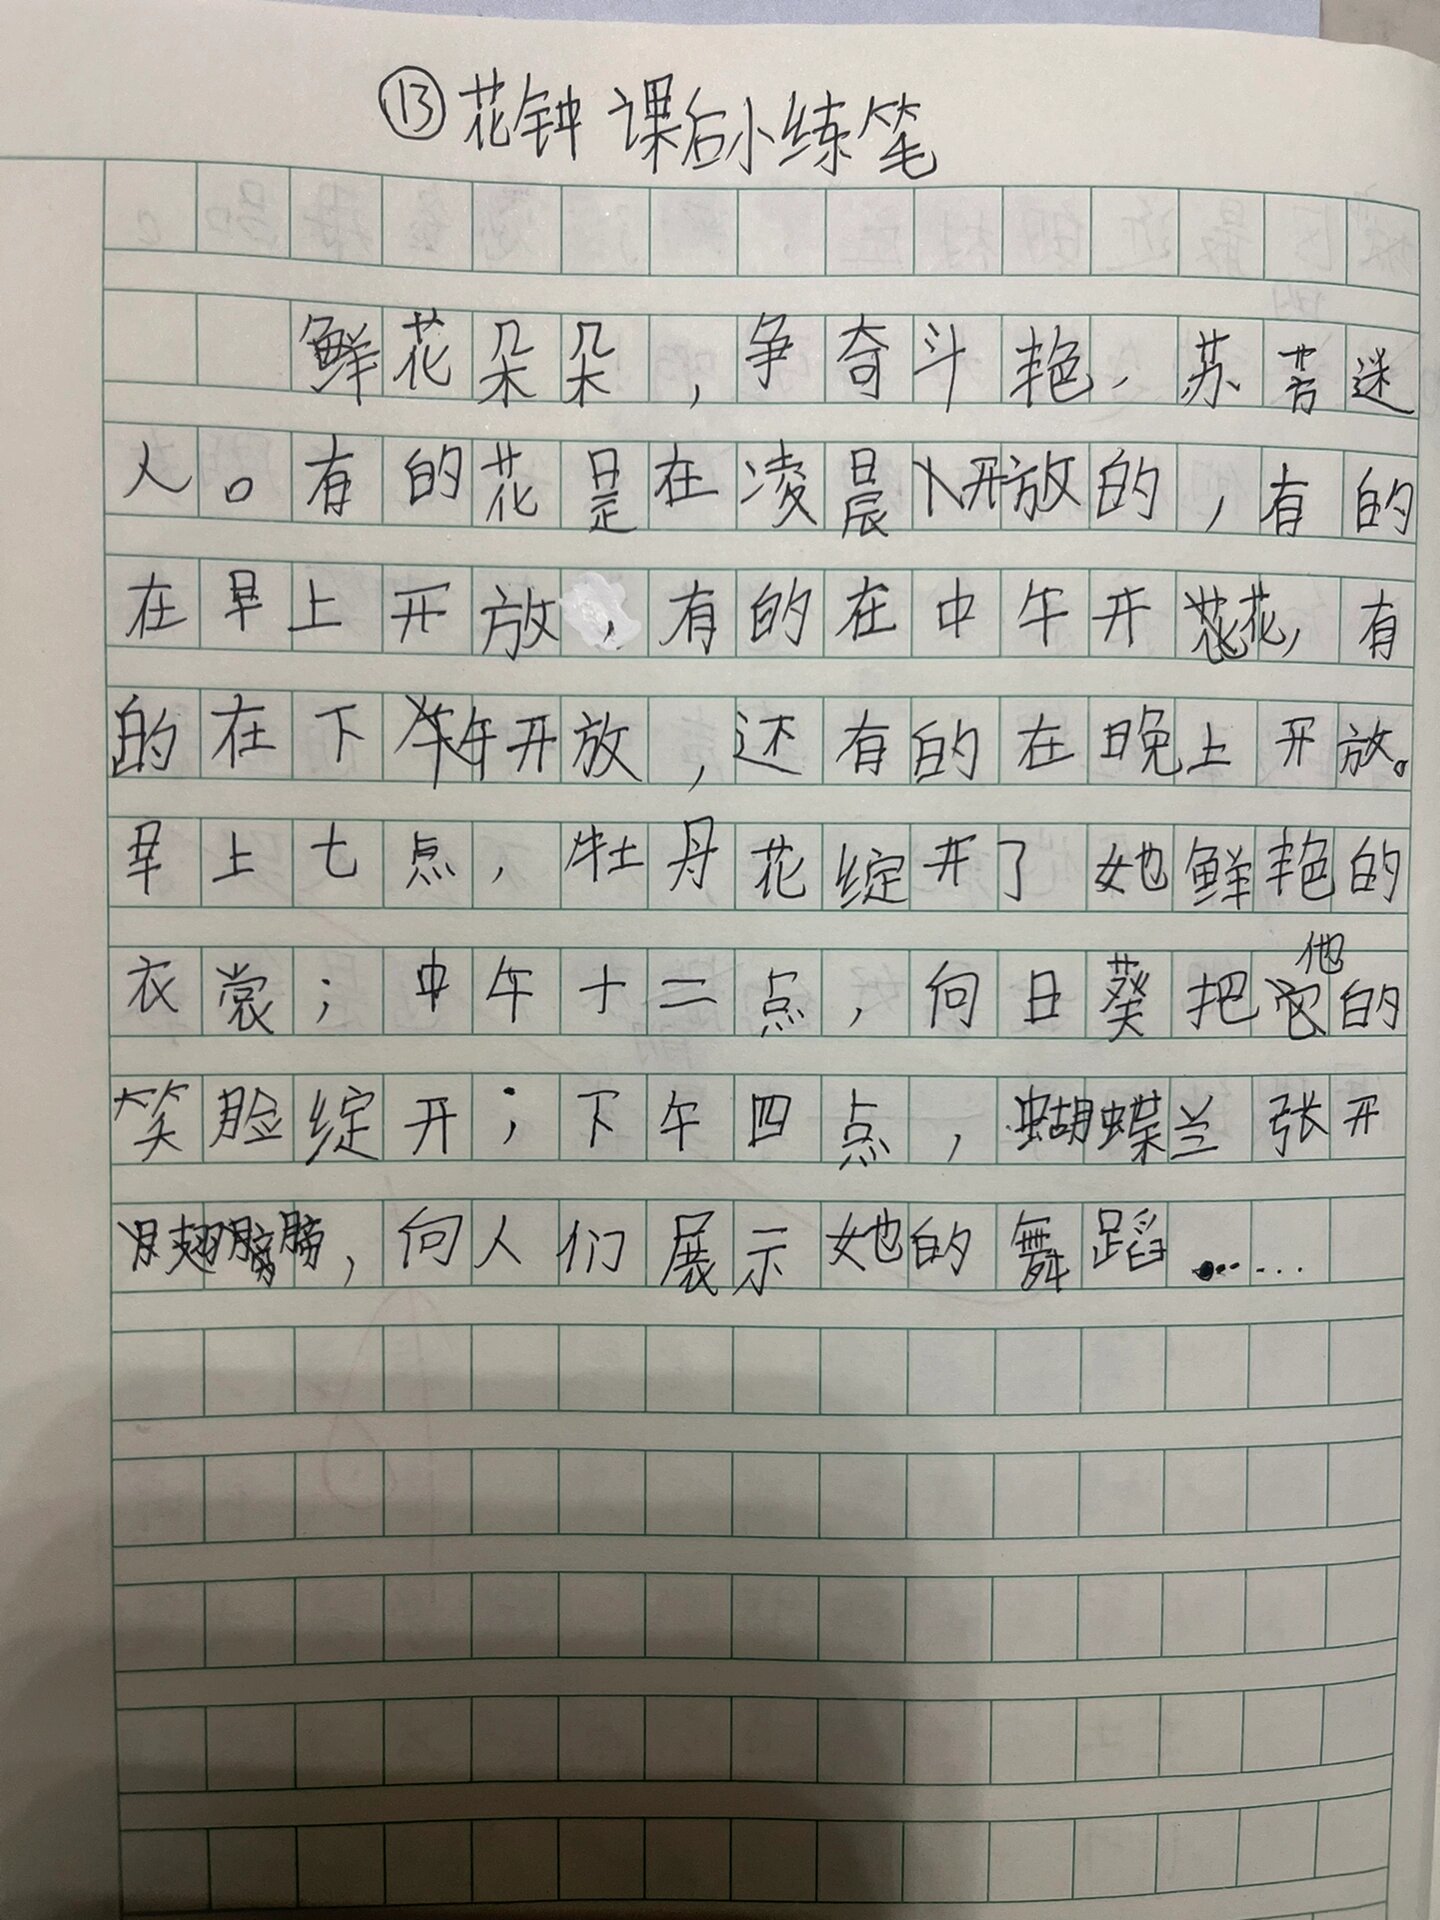 ⑬花钟 课后小练笔
鲜花朵朵，争奇斗艳，苏芳迷
人。有的花是在凌晨开放的，有的
在早上开放，有的在中午开花，有
的在下午开放，还有的在晚上开放。
早上七点，牡丹花绽开了她鲜艳的
衣裳；中午十二点，向日葵把他的
笑脸绽开；下午四点，蝴蝶兰张开
翅膀，向人们展示她的舞蹈……